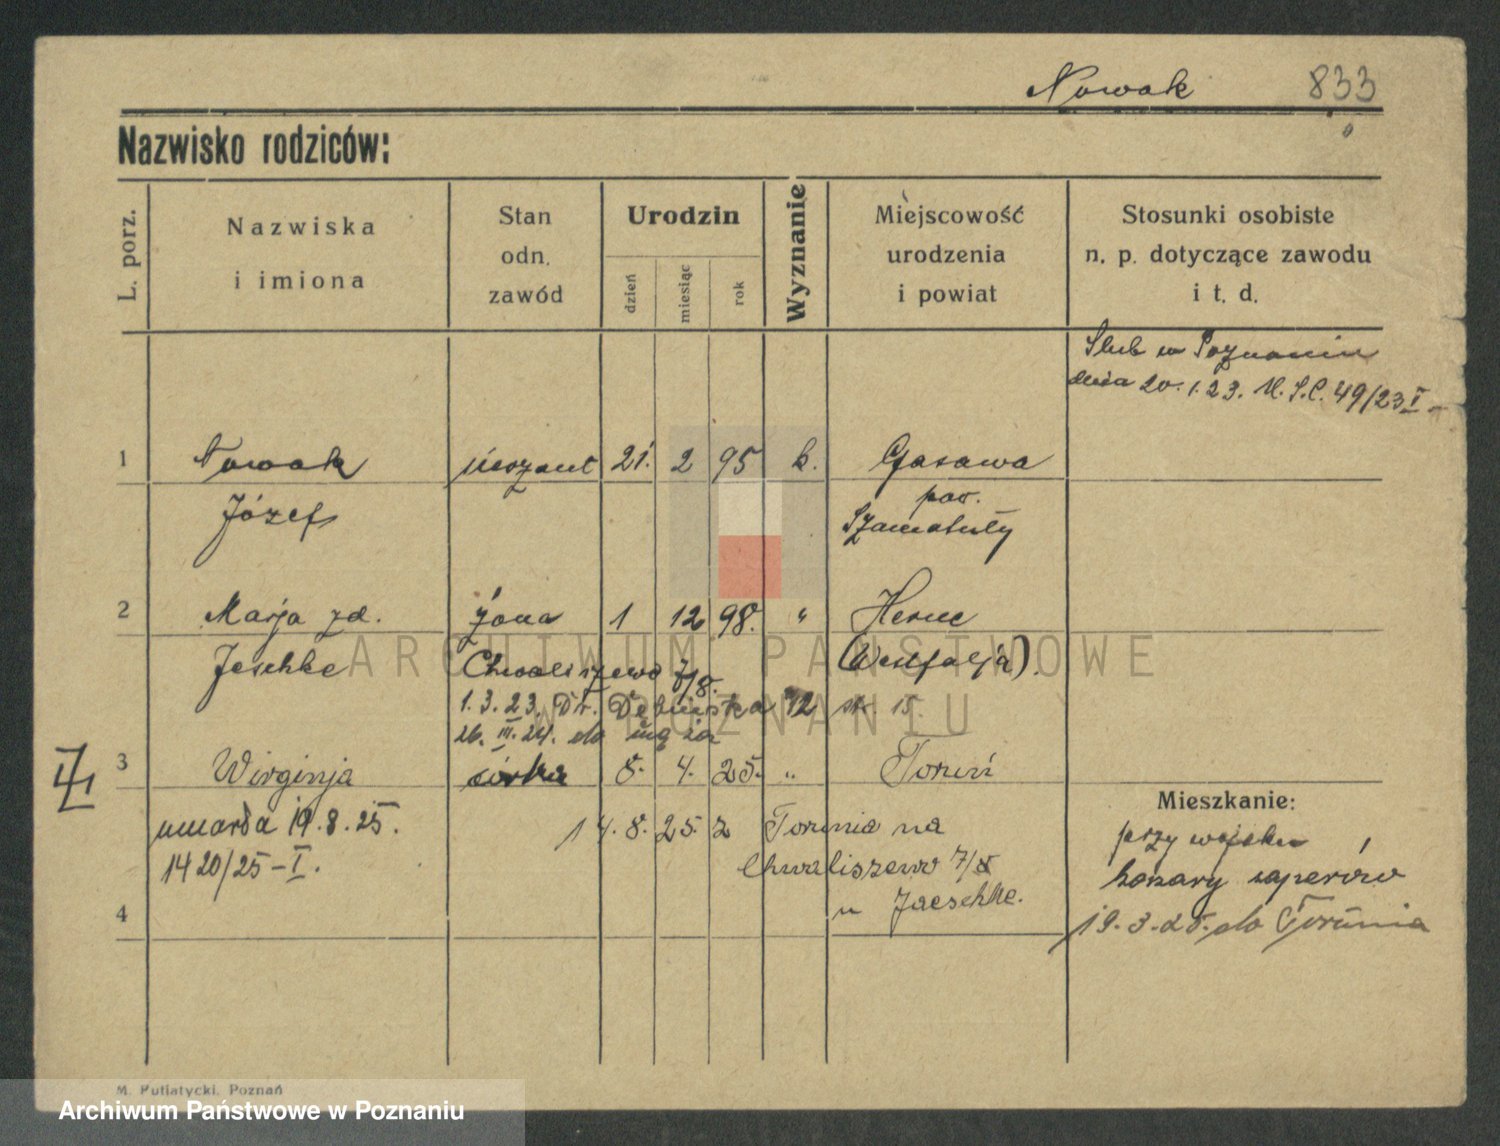 Nowak 833
Nazwisko rodziców:
L. porz.
Nazwiska
i imiona
Stan
odn.
zawód
Urodzin
dzień
miesiąc
rok
Wyznanie
Miejscowość
urodzenia
i powiat
Stosunki osobiste
n. p. dotyczące zawodu
i t. d.
Ślub w Poznaniu
dnia 20.1.23. U.S.C. 49/23 I
1 Nowak sierżant 21. 2 95 k. Gąsawa
Józef pow.
Szamotuły
2 Marja zd. żona 1 12 98. " Herne
Jeschke Chwaliszewo 7/8. (Westfalja).
1.3.23. Dr. Dębińska 12 st. 15.
26. III. 24. do męża
3 Wirginja córka 8. 4. 25. " Toruń
umarła 19.8.25. 14.8.25 z Torunia na
1420/25-I. Chwaliszewo 7/8
u Jaeschke.
4
Mieszkanie:
przy wojsku
koszary saperów
19.3.25. do Torunia
M. Putiatycki, Poznań
ARCHIWUM PAŃSTWOWE
W POZNANIU
Archiwum Państwowe w Poznaniu